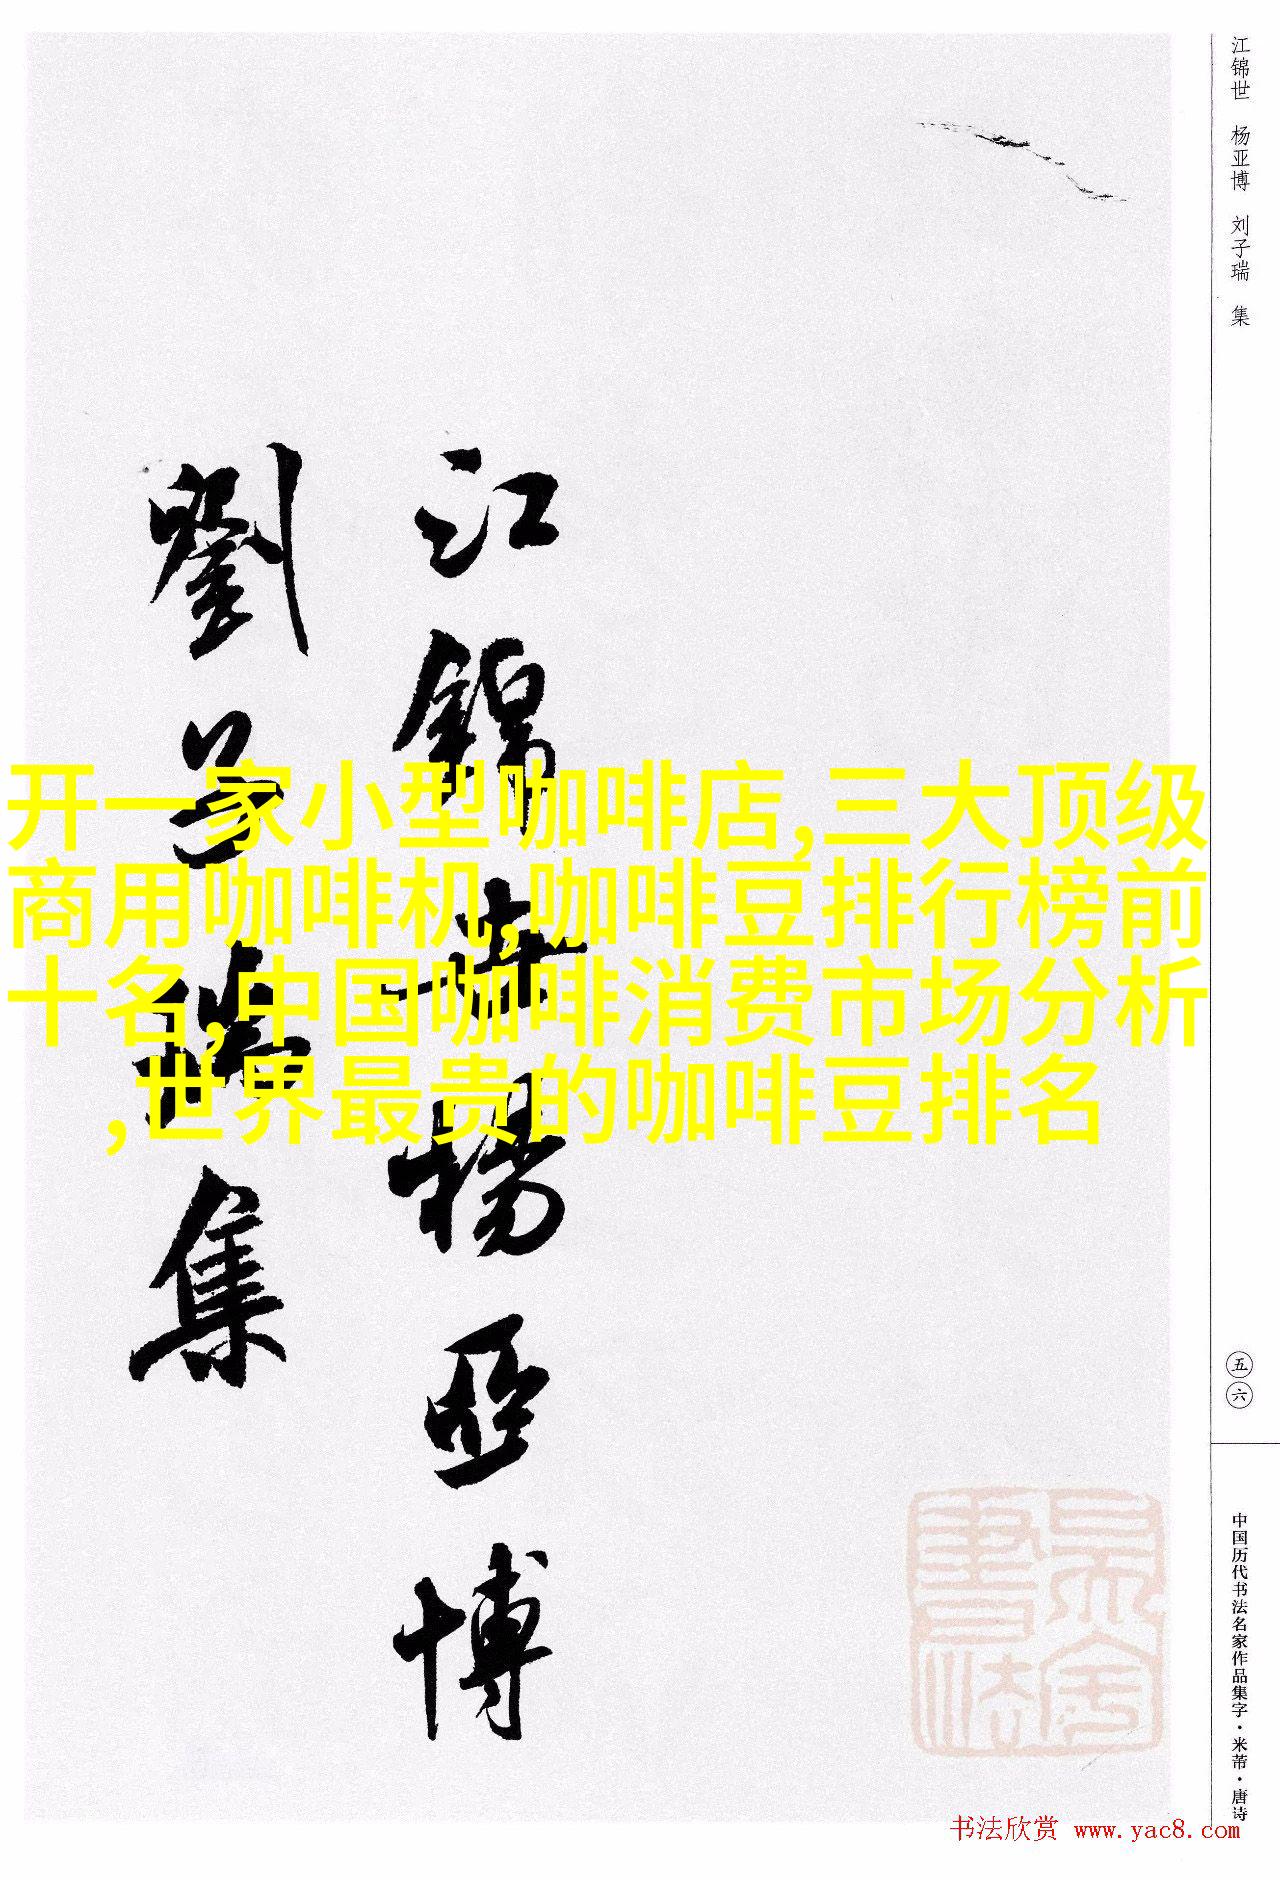 江锦世 杨亚博 刘子瑞 集
江錦世楊亞博
劉子瑞集
开一家小型咖啡店,三大顶级
商用咖啡机,咖啡豆排行榜前
十名,中国咖啡消费市场分析
,世界最贵的咖啡豆排名
五六
中国历代书法名家作品集字·米芾·唐诗
书法欣赏 www.yac8.com